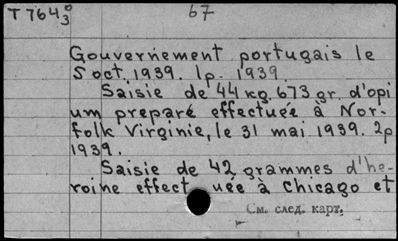 T 7643° 67
Gouvernement portugais le
5 oct. 1939. 1p. 1939.
Saisie de 44 kg. 673 gr. d'opi
um preparé effectuée à Nor-
folk Virginie, le 31 mai 1939. 2p
1939.
Saisie de 42 grammes d'he-
roine effect uée à Chicago et
См. след. карт.